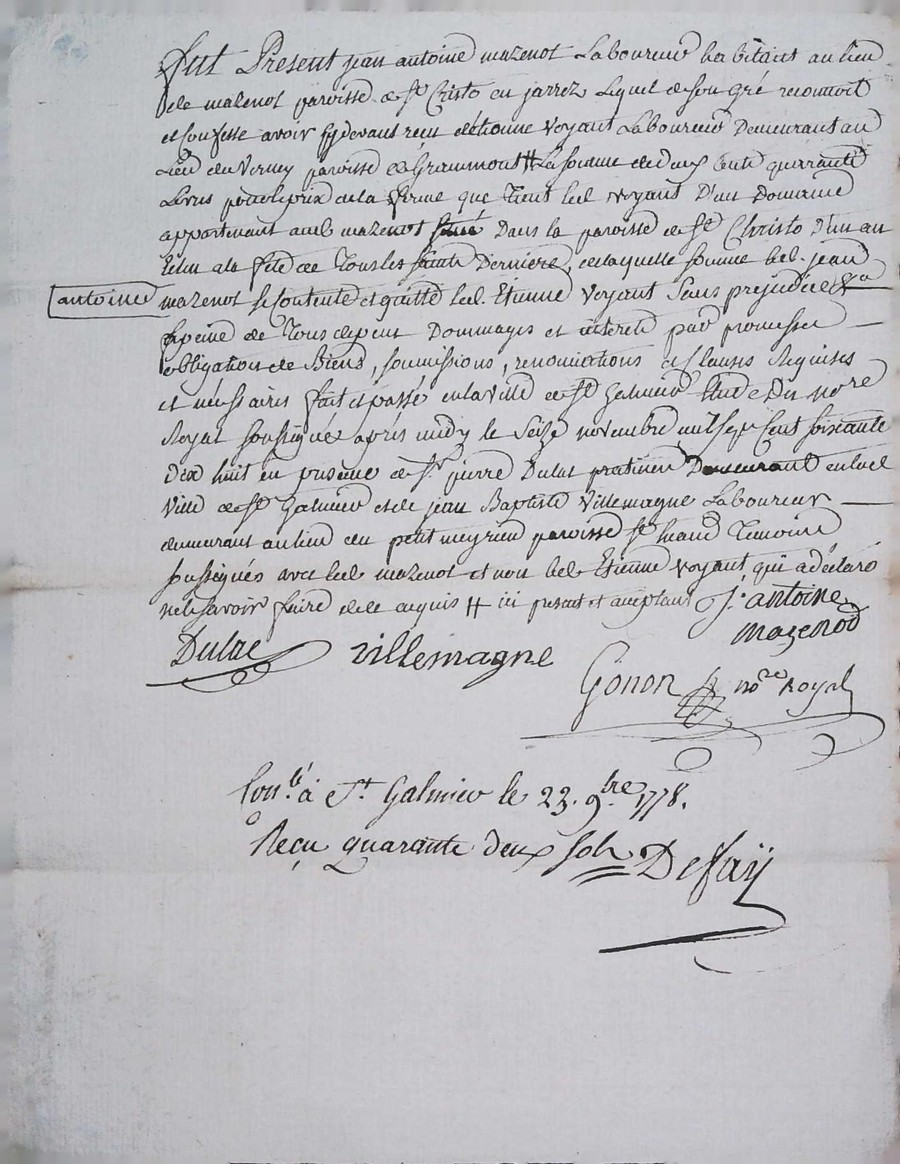 fut Present jean antoine mazenot Laboureur habitant au lieu
de mazenot paroisse de St Cristo en jarrez Lequel de son gré reconnoit
et confesse avoir cy devant reçu d'etienne Voyant Laboureur Demeurant au
Lieu du Verney paroisse de Grammont # La somme de deux Cents quarante
Livres pour le prix de la ferme que tient led voyant D'un Domaine
appartenant aud mazenot situé Dans la paroisse de St Christo d'un an
échu a la fête de Tous les saints Derniere, de laquelle somme led. jean
antoine mazenot se Contente et quitte led. Etienne Voyant Sans prejudice
a peine de tous depens Dommages et interets par promesses
obligation de Biens, soumissions, renonciations et Clauses Requises
et necessaires fait et passé en la ville de St Galmier Etude Du nore
Royal soussigné apres midy le Seize novembre mil sept Cent soixante
dix huit en presence de Sr. pierre Dulac praticien Demeurant en lad
Ville de St Galmier et de jean Baptiste Villemagne Laboureur
demeurant au lieu du petit meyrieu paroisse St heand Temoins
soussignés avec led mazenot et non led Etienne Voyant qui a declaré
ne le savoir faire de ce requis # ici present et acceptant J: antoine
mazenod
Dulac villemagne
Gonon nore Royal
Conlé à St Galmier le 23. 9bre 1778.
Reçu quarante deux sols Defaÿ